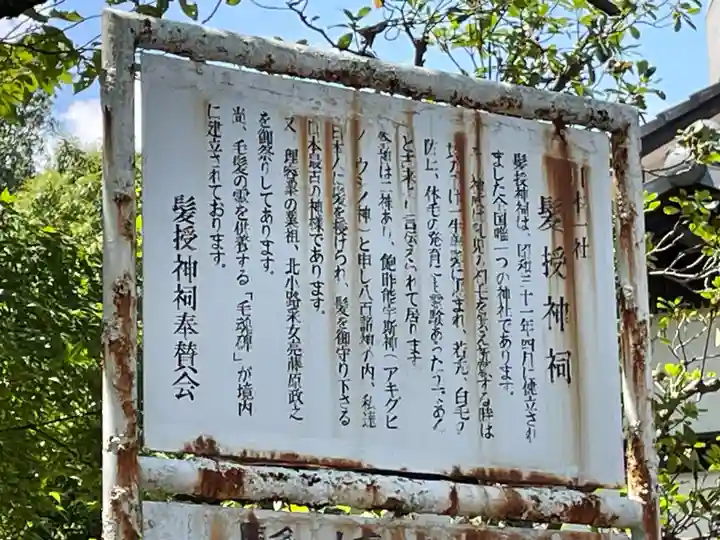 社
髪授神祠
髪授神祠は、昭和三十一年四月に建立され
ました全国唯一つの神社であります。
え祭る時は
一生 に恵まれ、若禿、白毛の
防止、体毛の発育にも霊験あらたかである
と古来より言伝えられて居ります
祭神は二神あり、飽咋能宇斯神(アキグヒ
ノウシノ神)と申し八百萬神の内、私達
日本人に髪を授けられ、髪を御守り下さる
日本最古の神様であります。
又、理容業の業祖、北小路采女亮藤原政之
を御祭りしてあります。
尚、毛髪の霊を供養する「毛魂碑」が境内
に建立されております。
髪授神祠奉賛会